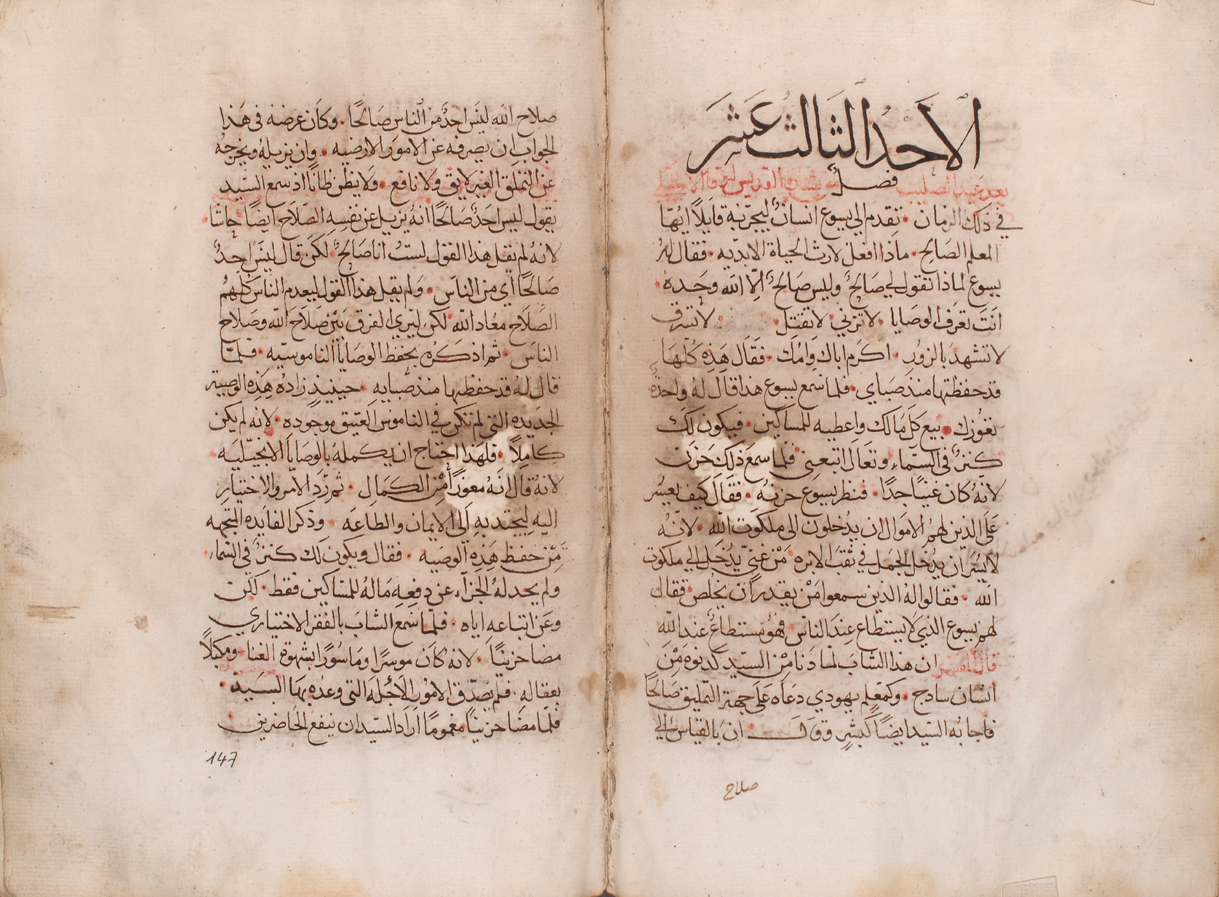 الأحد الثالث عشر
بعد عيد الصليب فصل من بشارة القديس لوقا الانجيلي
في ذلك الزمان • تقدم الي يسوع انسانٌ ليجربه قايلاً ايها
المعلم الصالح • ماذا افعل لارث الحياة الابديه • فقال له
يسوع لماذا تقول لي صالحٌ وليس صالحٌ الّا الله وحده •
انت تعرف الوصايا لا تزني لا تقتل • لا تسرق
لا تشهد بالزور • اكرم اباك وامك • فقال هذه كلها
قد حفظتها منذ صباي • فلما سمع يسوع هذا قال له واحدة
تعوزك • بيع كل مالك واعطيه للمساكين • فيكون لك
كنزٌ في السماء وتعال اتبعني • فلما سمع ذلك حزن
لانه كان غنياً جداً • فنظر يسوع حزنه • فقال كيف يعسر
على الذين لهم الاموال ان يدخلون الى ملكوت الله • لانه
لأيسر ان يدخل الجمل في ثقب الابره من غنيٍ يدخل الى ملكوت
الله • فقالوا له الذين سمعوا من يقدر ان يخلص • فقال
لهم يسوع الذي لا يستطاع عند الناس فهو مستطاع عند الله
قال المفسر ان هذا الشاب لما دنا من السيد كدنوه من
انسان سادج • وكمعلم يهودي دعاه على جهة التمليق صالحاً
فاجابه السيد ايضاً كبشرٍ وقال ان بالقياس الي
صلاح
صلاح الله ليس احدٌ من الناس صالحًا • وكان غرضه في هذا
الجواب ان يصرفه عن الامور الارضيه • وان يزيله ويخرجه
عن التملق الغير لايق ولا نافع • ولا يظن ظانًا اذ سمع السيد
يقول ليس احدٌ صالحًا انه يزيل عن نفسه الصلاح ايضاً حاشا •
لانه لم يقل هذا القول لست انا صالح • لكن قال ليس احدٌ
صالحًا اي من الناس • ولم يقل هذا القول ليعدم الناس كلهم
الصلاح معاد الله • لكن ليري الفرق بين صلاح الله وصلاح
الناس • ثم اذكره بحفظ الوصايا الناموسيه • فلما
قال له قد حفظتها منذ صبايه • حينيذٍ زاده هذه الوصية
الجديده التي لم تكن في الناموس العتيق موجوده • لانه لم يكن
كاملاً • فلهذا احتاج ان يكمله بالوصايا الانجيليه •
لانه قال انه معوزاً من الكمال • ثم رد الامر والاختيار
اليه ليجتذبه الى الايمان والطاعه • وذكر الفايده المتجهه
من حفظ هذه الوصيه • فقال ويكون لك كنزٌ في السماء •
ولم يحد له الجزآء عن دفعه ماله للمساكين فقط • لكن
وعن اتباعه اياه • فلما سمع الشاب بالفقر الاختياري
مضا حزينًا • لانه كان موسرًا وماسورًا بشهوة الغنا • ومكبلاً
بعقاله • فلم يصدق الامور الآجله التي وعده بها السيد •
فلما مضا حزينًا مغمومًا اراد السيد ان ينفع الحاضرين
147